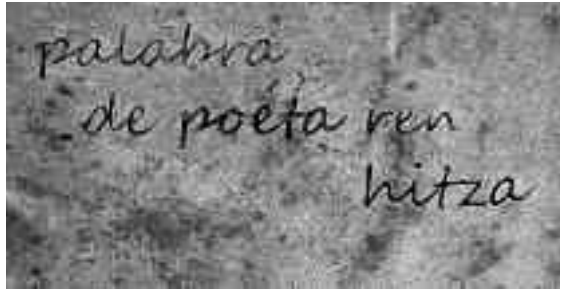 palabra
de poeta ren
hitza